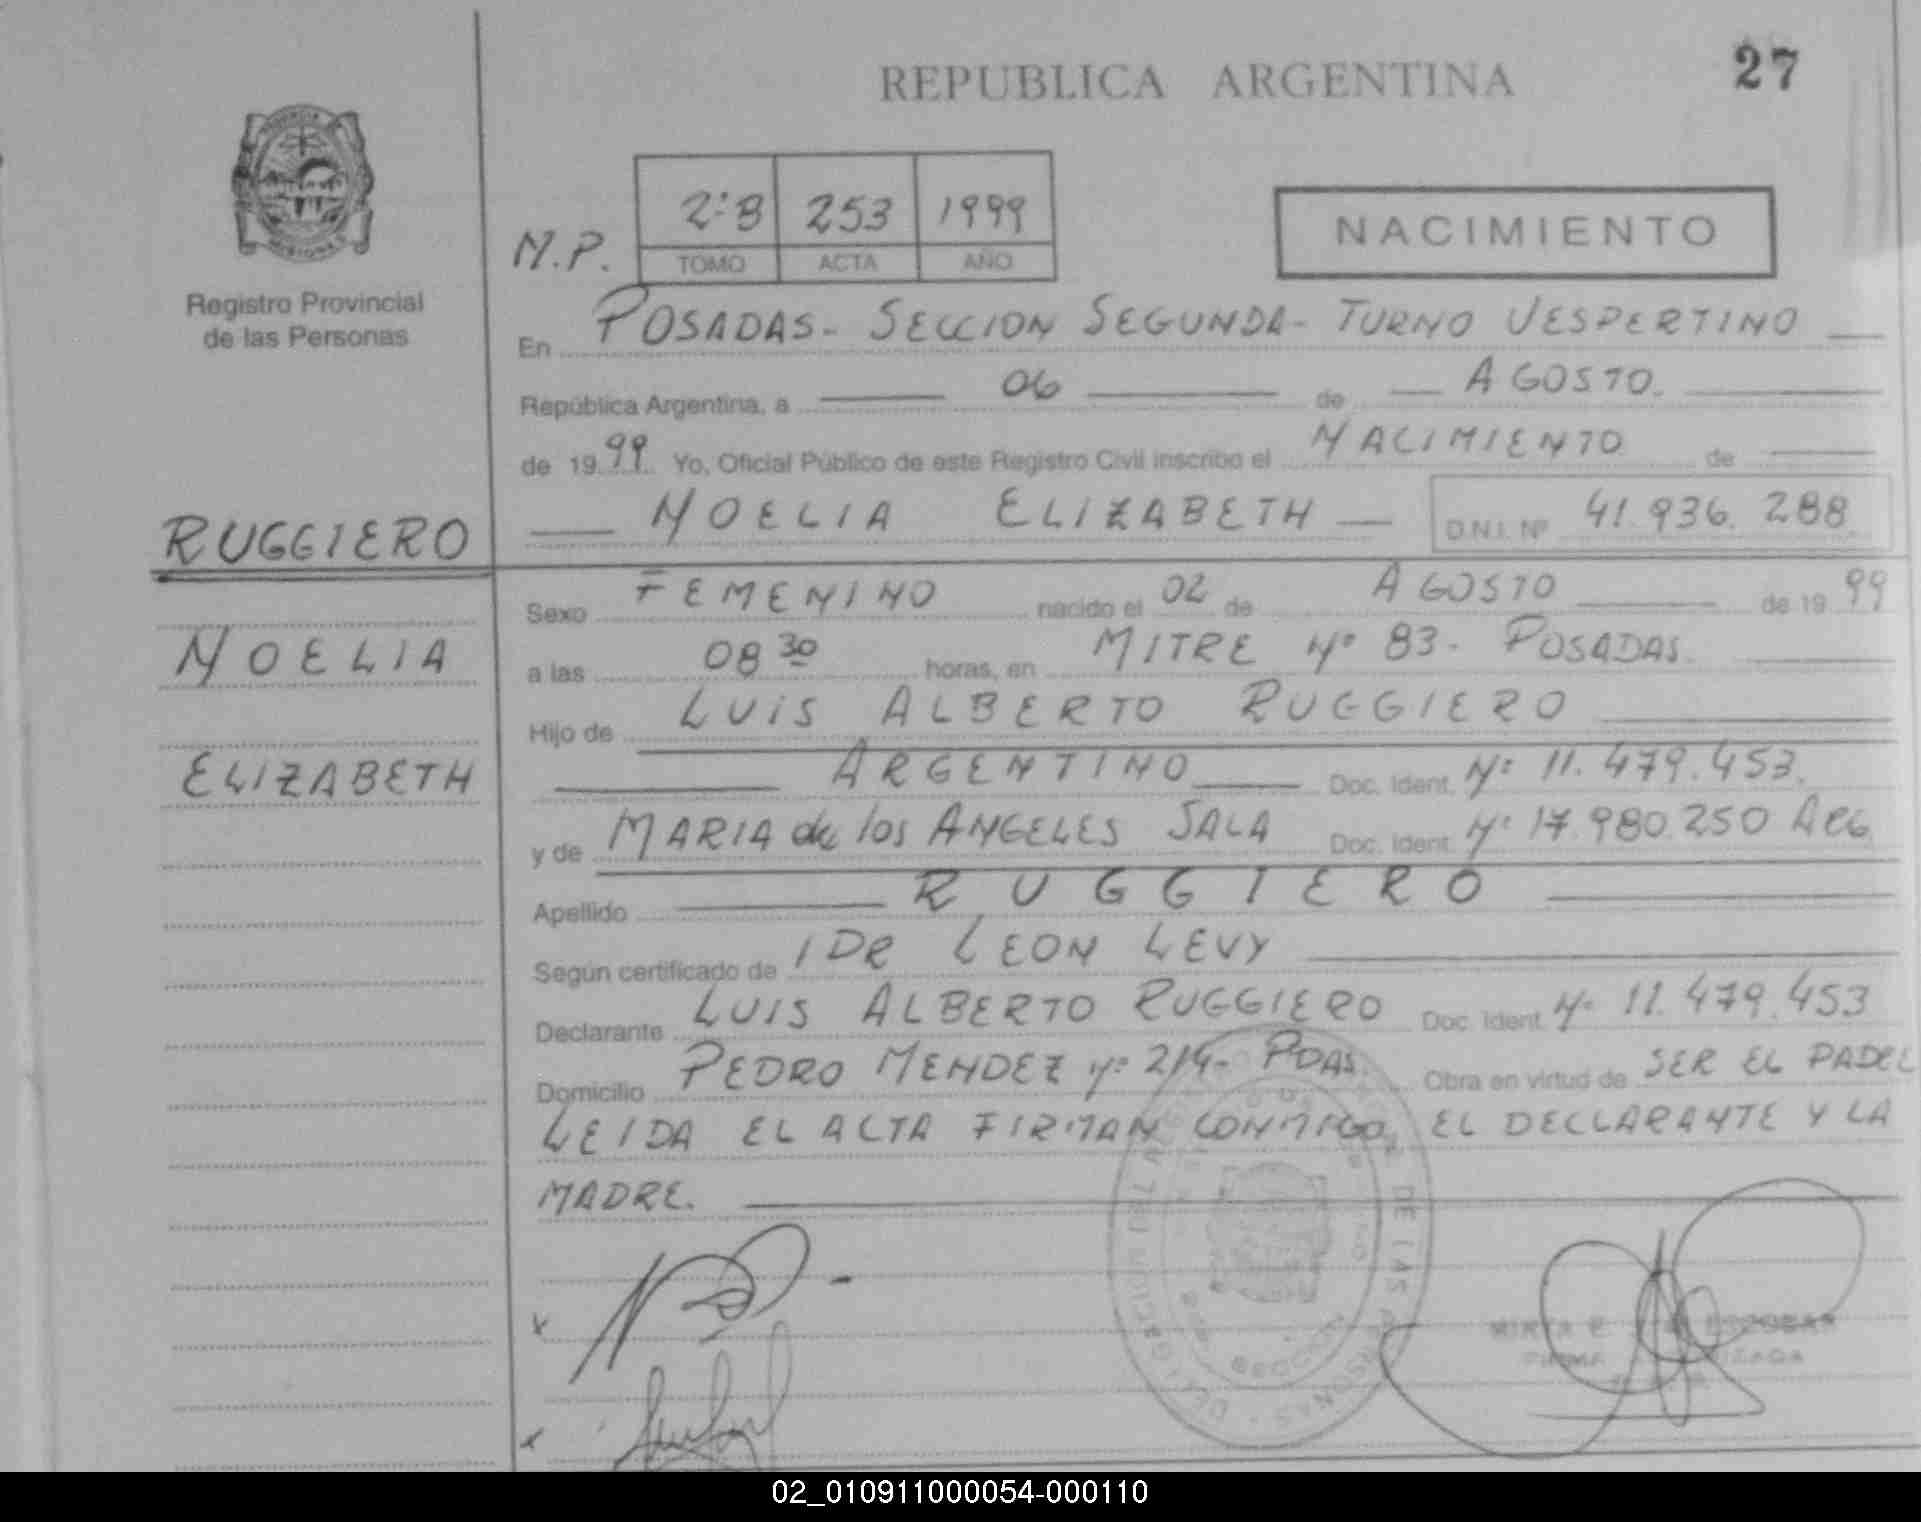 REPUBLICA ARGENTINA
27
Registro Provincial
de las Personas
M.P.
2:B 253 1999
TOMO ACTA AÑO
NACIMIENTO
En POSADAS- SECCION SEGUNDA- TURNO VESPERTINO
República Argentina, a 06 de AGOSTO.
de 1999 Yo, Oficial Público de este Registro Civil inscribo el NACIMIENTO de
NOELIA ELIZABETH D.N.I. Nº 41.936.288
RUGGIERO
NOELIA
ELIZABETH
Sexo FEMENINO nacido el 02 de AGOSTO de 1999
a las 08 30 horas, en MITRE Nº 83- POSADAS
Hijo de LUIS ALBERTO RUGGIERO
ARGENTINO Doc. Ident. Nº 11.479.453.
y de MARIA de los ANGELES SALA Doc. Ident. Nº 17.980.250 ARG
Apellido RUGGIERO
Según certificado de DR LEON LEVY
Declarante LUIS ALBERTO RUGGIERO Doc. Ident. Nº 11.479.453
Domicilio PEDRO MENDEZ Nº 214- PDAS. Obra en virtud de SER EL PADRE
LEIDA EL ACTA FIRMAN CONMIGO, EL DECLARANTE Y LA
MADRE.
DE LAS PERSONAS
ESCOBAR
02_010911000054-000110